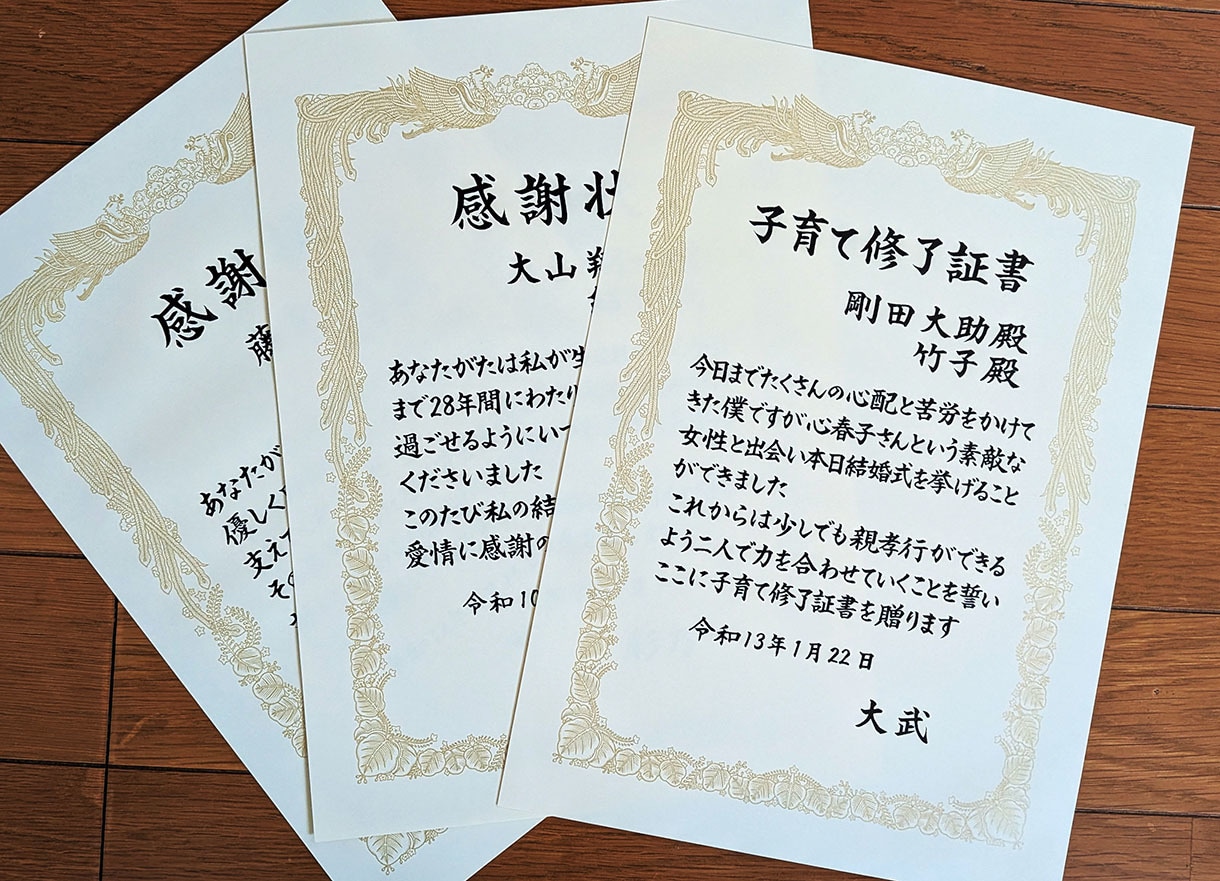 感謝
藤
あなたが
優しく
支えて
感謝状
大山翔
あなたがたは私が生
まで28年間にわたり
過ごせるようにいつ
くださいました
このたび私の結
愛情に感謝の
令和10
子育て修了証書
剛田大助殿
竹子殿
今日までたくさんの心配と苦労をかけて
きた僕ですが心春子さんという素敵な
女性と出会い本日結婚式を挙げること
ができました
これからは少しでも親孝行ができる
よう二人で力を合わせていくことを誓い
ここに子育て修了証書を贈ります
令和13年1月22日
大武